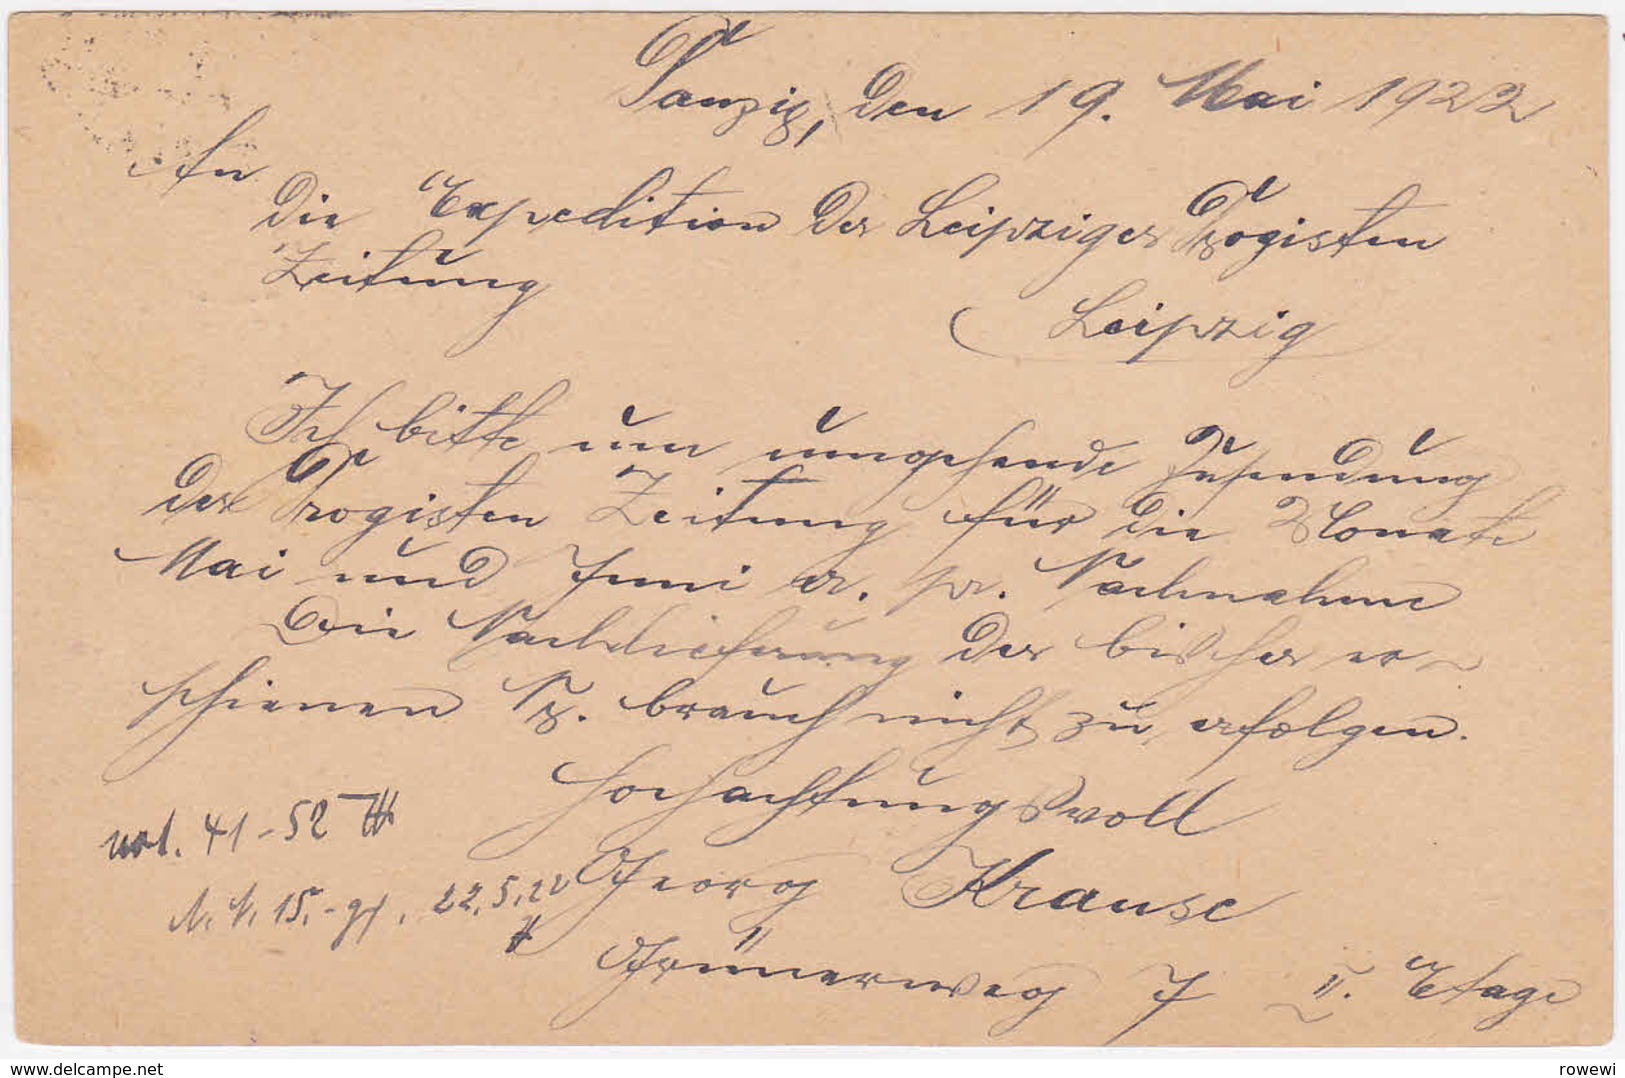 Danzig, den 19. Mai 1922
An
die Expedition der Leipziger Drogisten
Zeitung
Leipzig
Ich bitte um umgehende Zusendung
der Drogisten Zeitung für die Monate
Mai und Juni cr. pr. Nachnahme
Die Nachlieferung der bisher er-
schienen Nr. brauch nicht zu erfolgen.
Hochachtungsvoll
not. 41-52
Georg Krause
N. N. 15,- 22.5.22
Grünerweg 7 II. Etage
www.delcampe.net
rowewi